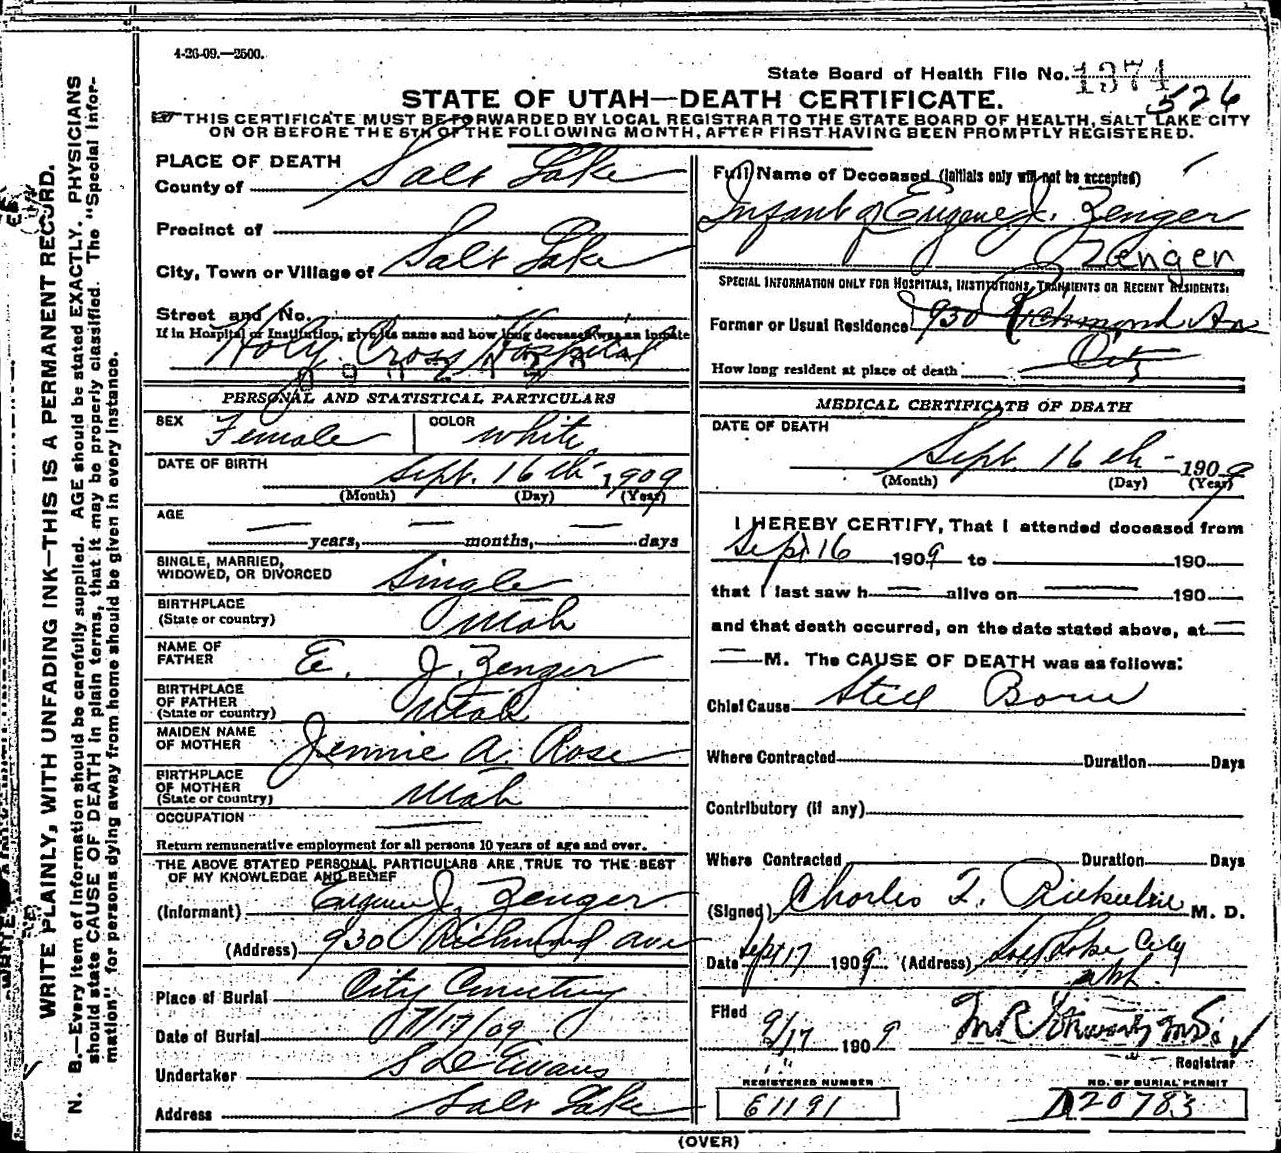 4-26-09.—2500.
State Board of Health File No. 1374
526
STATE OF UTAH—DEATH CERTIFICATE.
THIS CERTIFICATE MUST BE FORWARDED BY LOCAL REGISTRAR TO THE STATE BOARD OF HEALTH, SALT LAKE CITY
ON OR BEFORE THE 5TH OF THE FOLLOWING MONTH, AFTER FIRST HAVING BEEN PROMPTLY REGISTERED.
WRITE PLAINLY, WITH UNFADING INK—THIS IS A PERMANENT RECORD.
N. B.—Every item of information should be carefully supplied. AGE should be stated EXACTLY. PHYSICIANS
should state CAUSE OF DEATH in plain terms, that it may be properly classified. The "Special Infor-
mation" for persons dying away from home should be given in every instance.
PLACE OF DEATH
County of Salt Lake
Precinct of
City, Town or Village of Salt Lake
Street and No.
If in Hospital or Institution, give its name and how long deceased was an inmate
Holy Cross Hospital
PERSONAL AND STATISTICAL PARTICULARS
SEX Female COLOR White
DATE OF BIRTH Sept. 16th 1909
(Month) (Day) (Year)
AGE
— years, — months, — days
SINGLE, MARRIED,
WIDOWED, OR DIVORCED Single
BIRTHPLACE
(State or country) Utah
NAME OF
FATHER E. J. Zenger
BIRTHPLACE
OF FATHER
(State or country) Utah
MAIDEN NAME
OF MOTHER Jennie A. Rose
BIRTHPLACE
OF MOTHER
(State or country) Utah
OCCUPATION
Return remunerative employment for all persons 10 years of age and over.
THE ABOVE STATED PERSONAL PARTICULARS ARE TRUE TO THE BEST
OF MY KNOWLEDGE AND BELIEF
(Informant) Eugene J. Zenger
(Address) 930 Richmond Ave
Place of Burial City Cemetery
Date of Burial 9/17/09
Undertaker S D Evans
Address Salt Lake
Full Name of Deceased (Initials only will not be accepted)
Infant of Eugene J. Zenger
Zenger
SPECIAL INFORMATION ONLY FOR HOSPITALS, INSTITUTIONS, TRANSIENTS OR RECENT RESIDENTS.
Former or Usual Residence 930 Richmond Av
City
How long resident at place of death
MEDICAL CERTIFICATE OF DEATH
DATE OF DEATH
Sept. 16th - 1909
(Month) (Day) (Year)
I HEREBY CERTIFY, That I attended deceased from
Sept 16 1909 to 190
that I last saw h — alive on — 190
and that death occurred, on the date stated above, at —
— M. The CAUSE OF DEATH was as follows:
Chief Cause Still Born
Where Contracted Duration Days
Contributory (if any)
Where Contracted Duration Days
(Signed) Charles F. M. D.
Date Sept 17 1909 (Address) Salt Lake City
Utah
Filed
9/17 1909
Registrar
REGISTERED NUMBER
61191
NO. OF BURIAL PERMIT
D20783
(OVER)